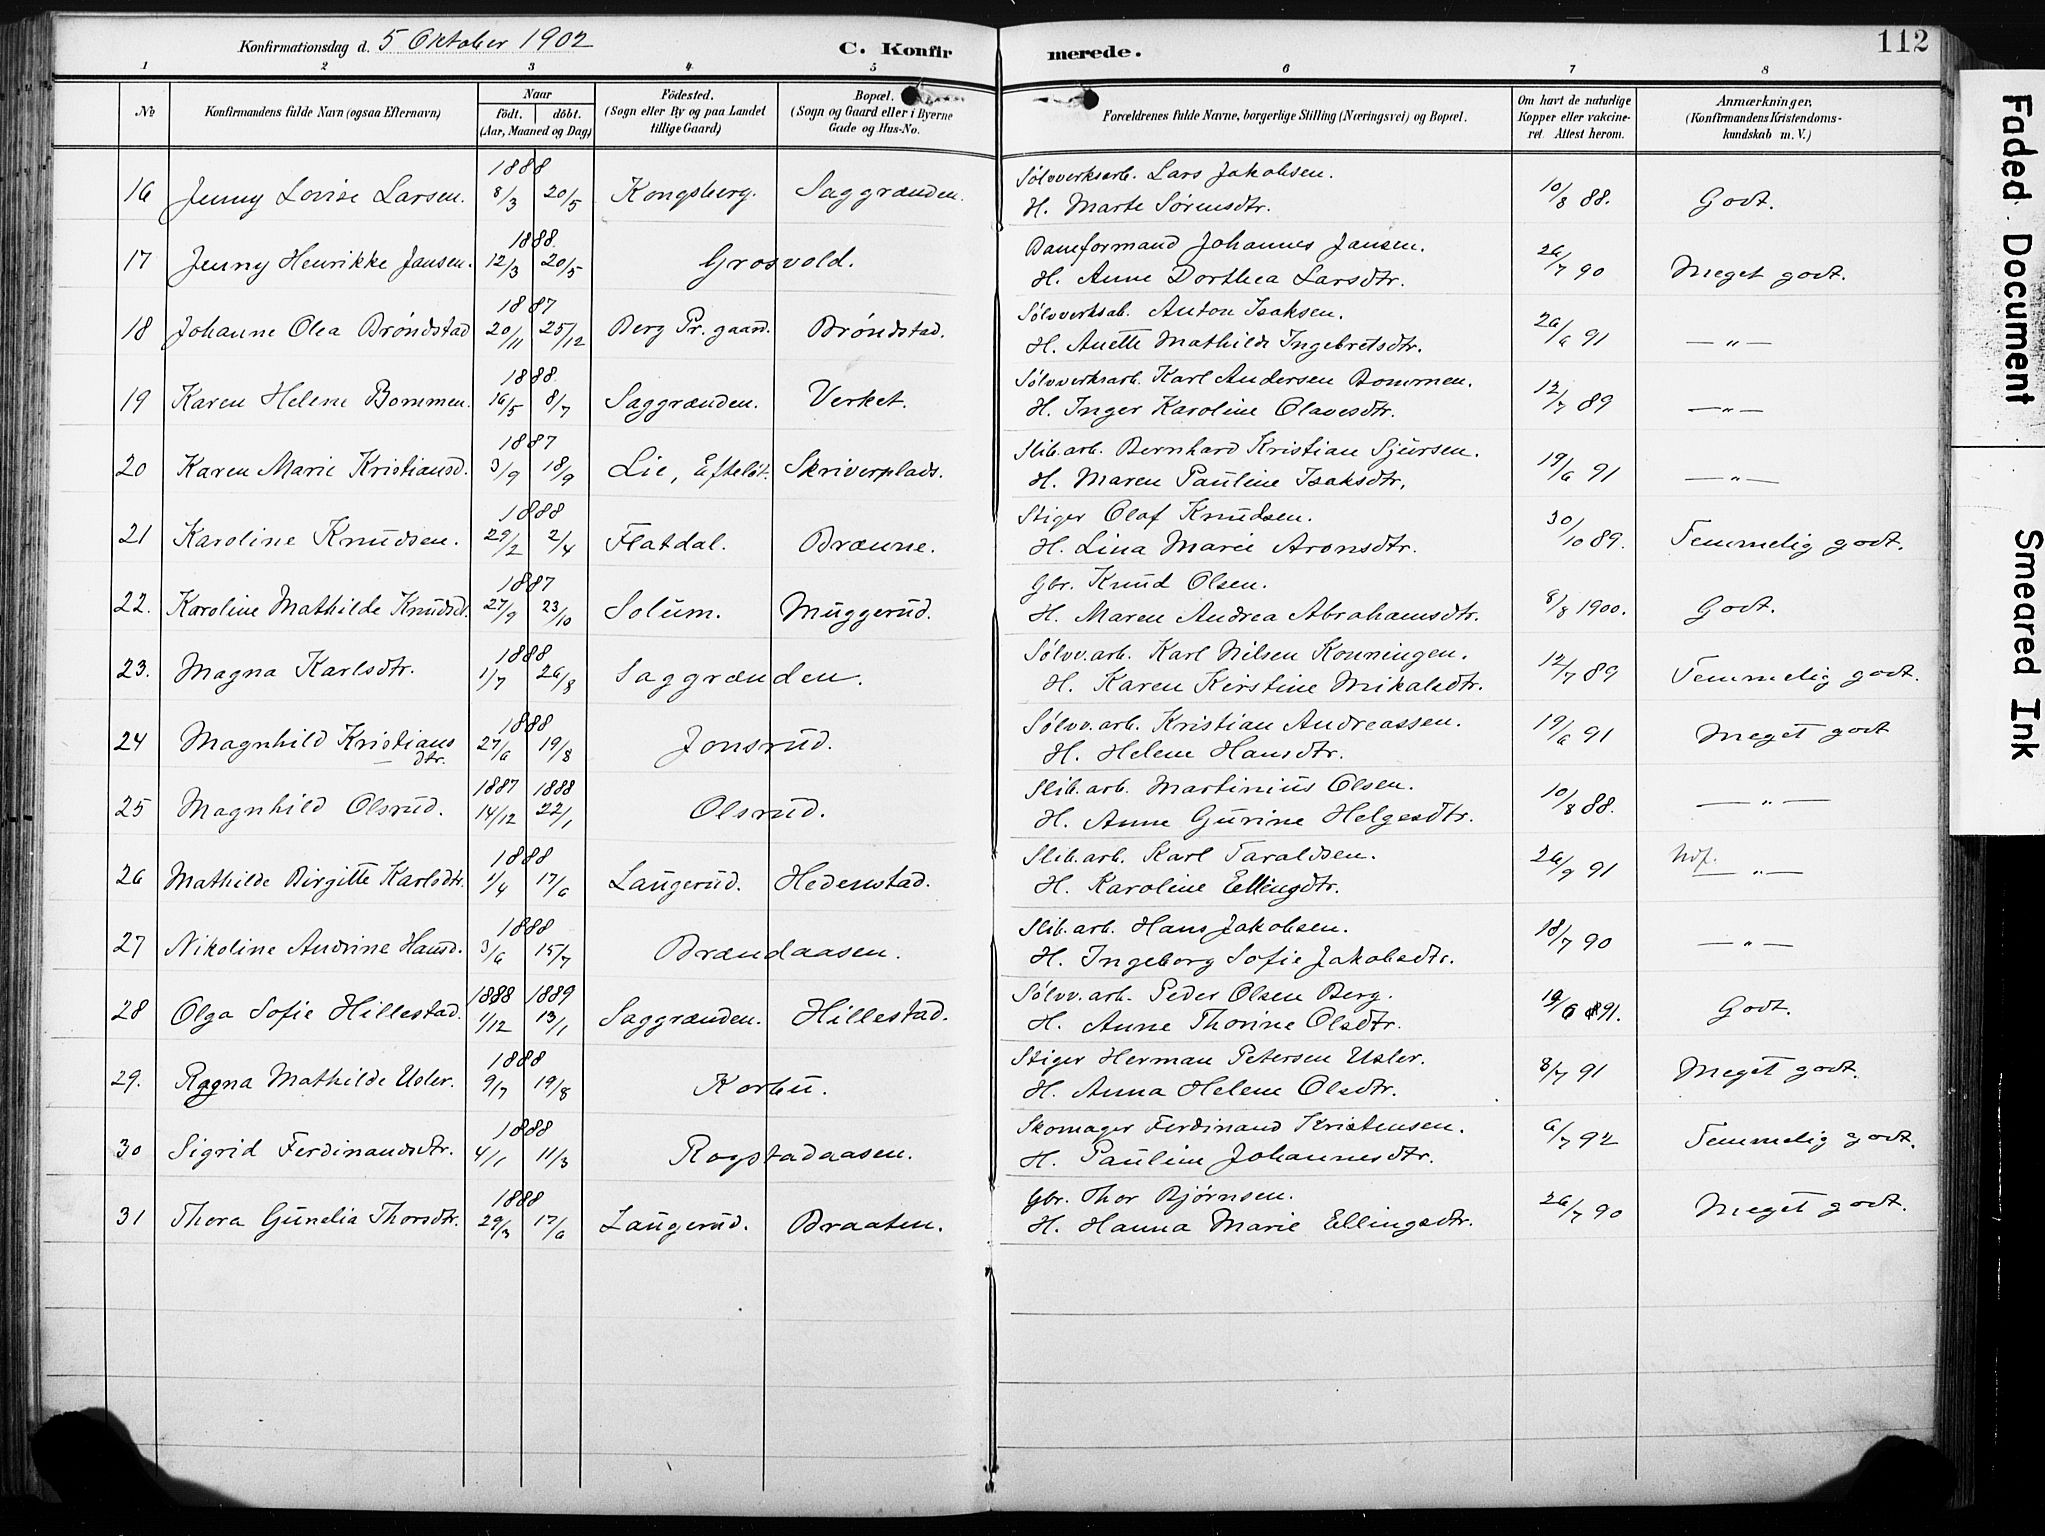 Konfirmationsdag d. 5 Oktober 1902 C. Konfir merede. 112
1 2 3 4 5 6 7 8
No Konfirmandens fulde Navn (ogsaa Efternavn) Naar født. døbt. (Aar, Maaned og Dag) Fødested. (Sogn eller By og paa Landet tillige Gaard) Bopæl. (Sogn og Gaard eller i Byerne Gade og Hus-No. Forældrenes fulde Navne, borgerlige Stilling (Næringsvei) og Bopæl. Om havt de naturlige Kopper eller vakcineret. Attest herom. Anmærkninger, (Konfirmandens Kristendomskundskab m. V.)
16 Jenny Lovise Larsen. 1888 8/3 20/5 Kongsberg. Saggrænden. Sølvverksarb. Lars Jakobsen. H. Marte Sørensdtr. 10/8 88. Godt.
17 Jenny Henrikke Jansen. 1888. 12/3 20/5 Grosvold. Baneformand Johannes Jansen. H. Anne Dorthea Larsdtr. 26/7 90 Meget godt.
18 Johanne Olea Brøndstad 1887 20/11 25/12 Berg Pr. gaard. Brøndstad. Sølvverksab. Anton Isaksen. H. Anette Mathilde Ingebretsdtr. 26/6 91 — " —
19 Karen Helene Bommen. 1888. 16/5 8/7 Saggrænden. Verket. Sølvverksarb. Karl Andersen Bommen. H. Inger Karoline Olavesdtr. 12/7 89 — " —
20 Karen Marie Kristiansd. 1887 3/9 18/9 Lie, Efteløt. Skriverplads. Slib.arb. Bernhard Kristian Sjursen. H. Maren Pauline Isaksdtr. 19/6 91 — " —
21 Karoline Knudsen. 1888 29/2 2/4 Flatdal. Brænne. Stiger Olaf Knudsen. H. Lina Marie Aronsdtr. 30/10 89. Temmelig godt.
22. Karoline Mathilde Knudsd. 1887 27/9 23/10 Solum. Muggerud. Gbr. Knud Olsen. H. Maren Andrea Abrahamsdtr. 8/8 1900. Godt.
23. Magna Karlsdtr. 1888 1/7 26/8 Saggrænden. Sølvv.arb. Karl Nilsen Konningen. H. Karen Kirstine Mikalsdtr. 12/7 89 Temmelig godt.
24 Magnhild Kristians dtr. 1888 27/6 19/8 Jonsrud. Sølvv.arb. Kristian Andreassen. H. Helene Hansdtr. 19/6 91 Meget godt
25 Magnhild Olsrud. 1887 14/12 1888 22/1 Olsrud. Slib.arb. Martinius Olsen. H. Anne Gurine Helgesdtr. 10/8 88. — " —
26 Mathilde Birgitte Karlsdtr. 1888 1/4 17/6 Laugerud. Hedenstad. Slib.arb. Karl Taraldsen. H. Karoline Ellingsdtr. 26/9 91 — " —
27 Nikoline Andrine Hansd. 1888 3/6 15/7 Brændaasen. Slib.arb. Hans Jakobsen. H. Ingeborg Sofie Jakobsdtr. 18/7 90 — " —
28 Olga Sofie Hillestad. 1888 1/12 1889 13/1 Saggrænden. Hillestad. Sølvv.arb. Peder Olsen Berg. H. Anne Thorine Olsdtr. 19/6 91. Godt.
29. Ragna Mathilde Usler. 1888 9/7 19/8 Korbu. Stiger Herman Petersen Usler. H. Anna Helene Olsdtr. 8/7 91 Meget godt.
30 Sigrid Ferdinandsdtr. 1888 4/1 11/3 Rogstadaasen. Skomager Ferdinand Kristensen. H. Pauline Johannesdtr. 6/7 92 Temmelig godt.
31 Thora Gunelia Thorsdtr. 1888 29/3 17/6 Laugerud. Braaten. Gbr. Thor Bjørnsen. H. Hanna Marie Ellingsdtr. 26/7 90 Meget godt.
Faded Document
Smeared Ink